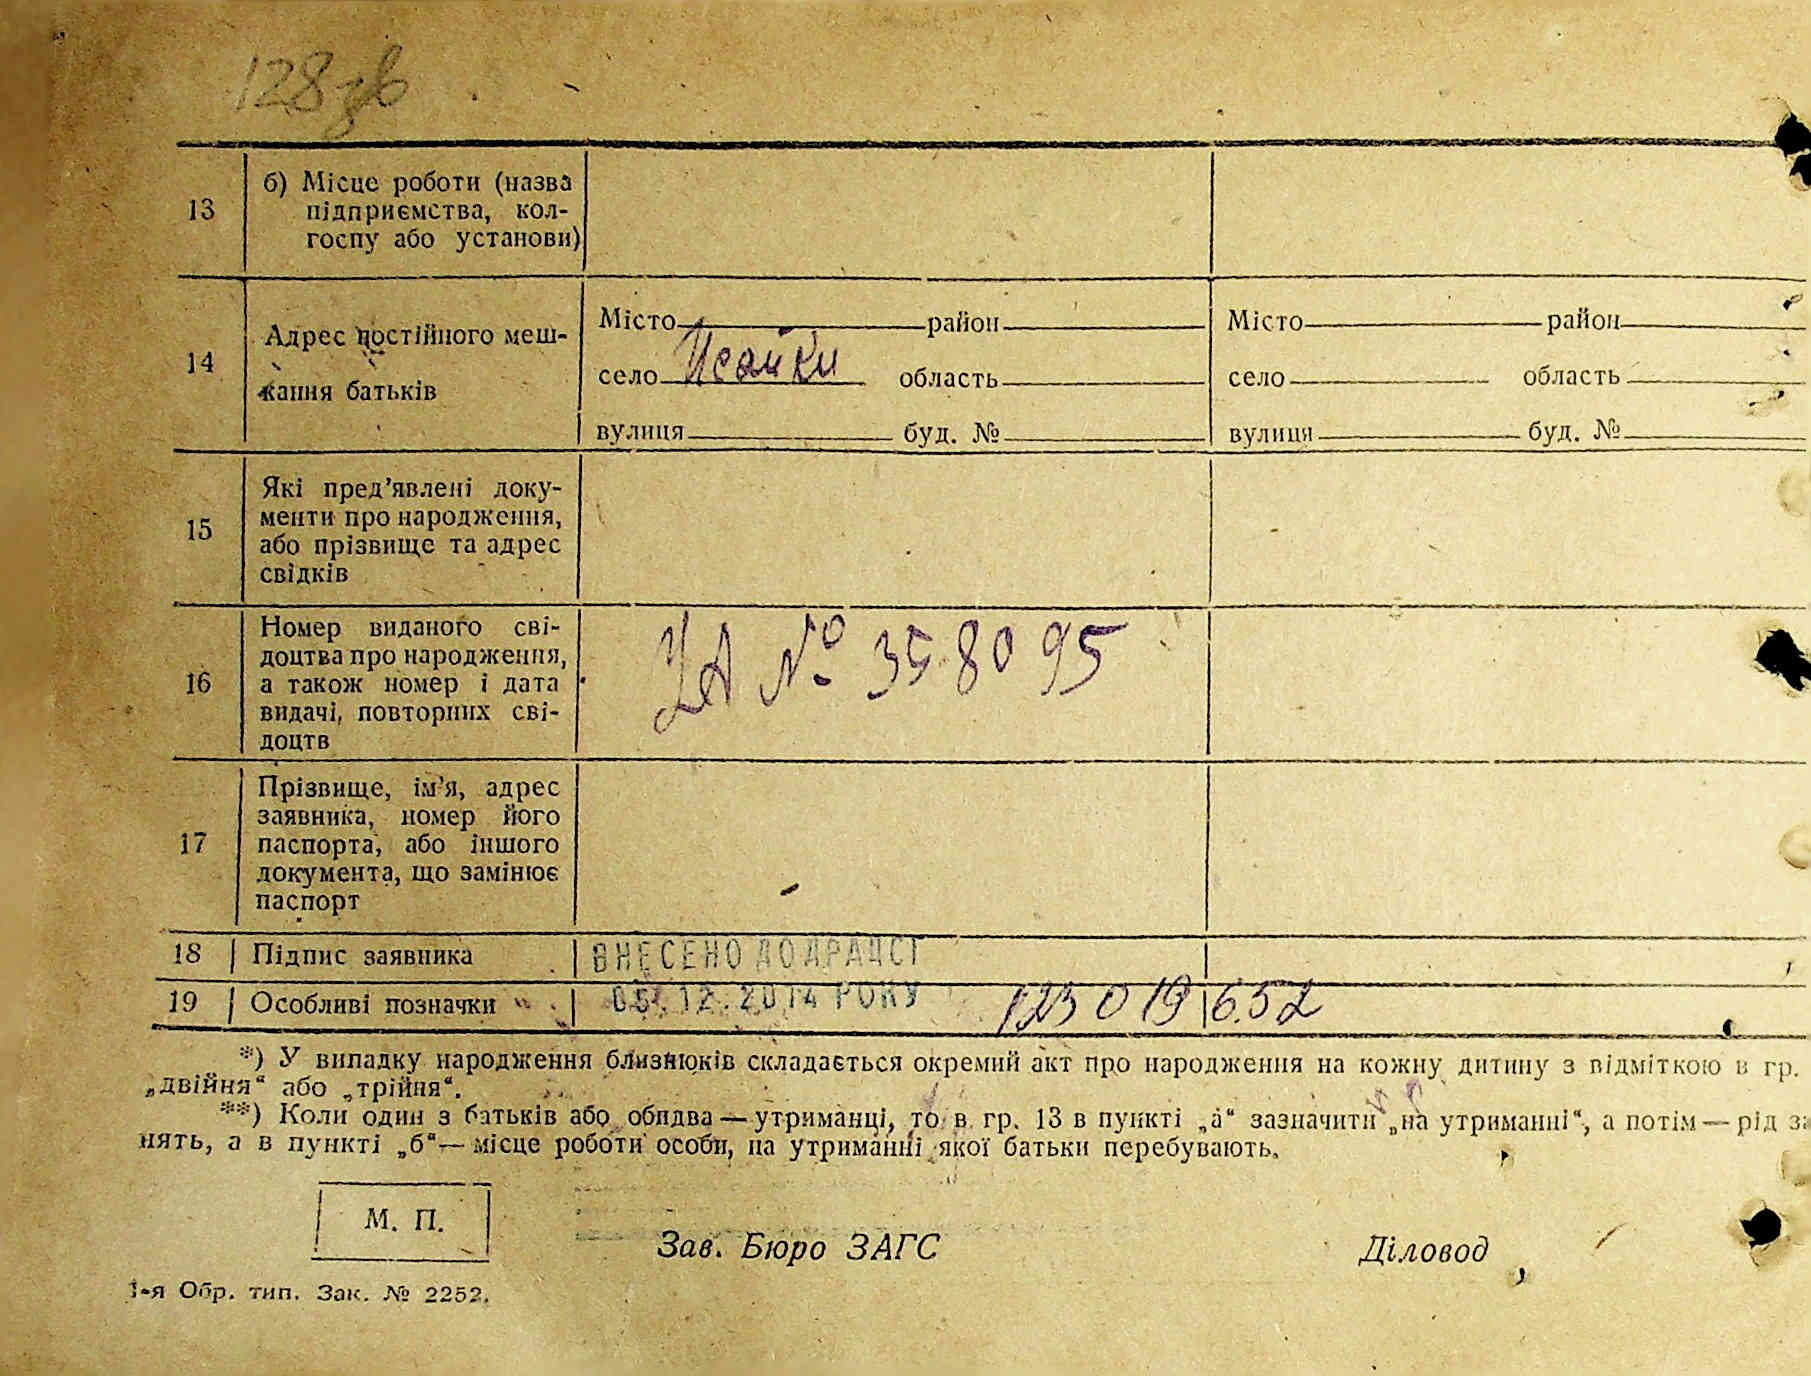 128 зв
13
б) Місце роботи (назва
підприємства, кол-
госпу або установи)
14
Адрес постійного меш-
кання батьків
Місто район
село Исайки область
вулиця буд. №
Місто район
село область
вулиця буд. №
15
Які пред’явлені доку-
менти про народження,
або прізвище та адрес
свідків
16
Номер виданого сві-
доцтва про народження,
а також номер і дата
видачі, повторних сві-
доцтв
УА № 358095
17
Прізвище, ім’я, адрес
заявника, номер його
паспорта, або іншого
документа, що замінює
паспорт
18 Підпис заявника
ВНЕСЕНО ДО ДРАЦСГ
19 Особливі позначки
05.12.2014 РОКУ
123019652
*) У випадку народження близнюків складається окремий акт про народження на кожну дитину з відміткою в гр.
„двійня“ або „трійня“.
**) Коли один з батьків або обидва — утриманці, то в гр. 13 в пункті „а“ зазначити „на утриманні“, а потім — рід за
нять, а в пункті „б“ — місце роботи особи, на утриманні якої батьки перебувають.
М. П.
Зав. Бюро ЗАГС Діловод
1-я Обр. тип. Зак. № 2252.